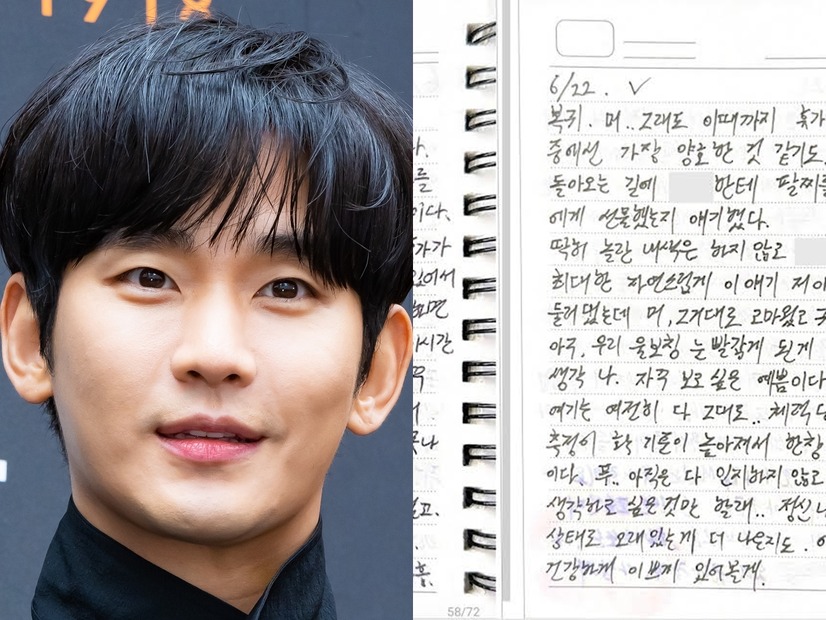 1918
를
이다.
있어서
시간
58/72
6/22. ✓
복귀. 머.. 그래도 이때까지
중에선 가장 양호한 것 같기도.
돌아오는 길에 한테 팔찌를
에게 선물했는지 얘기했다.
딱히 놀란 내색은 하지 않고
최대한 자연스럽게 이 얘기 저
둘러댔는데 머, 그거대로 고마웠고
아주. 우리 울보칭 눈 빨갛게 된게
생각 나. 자꾸 보고 싶은 예쁨이다
여기는 여전히 다 그대로.. 체력
측정이 확 기준이 높아져서 한창
이다. 푸.. 아직은 다 인지하지 않고
생각하고 싶은것만 할래.. 정신
상태로 오래있는게 더 나은지도.
건강하게 이쁘게 있어볼게.